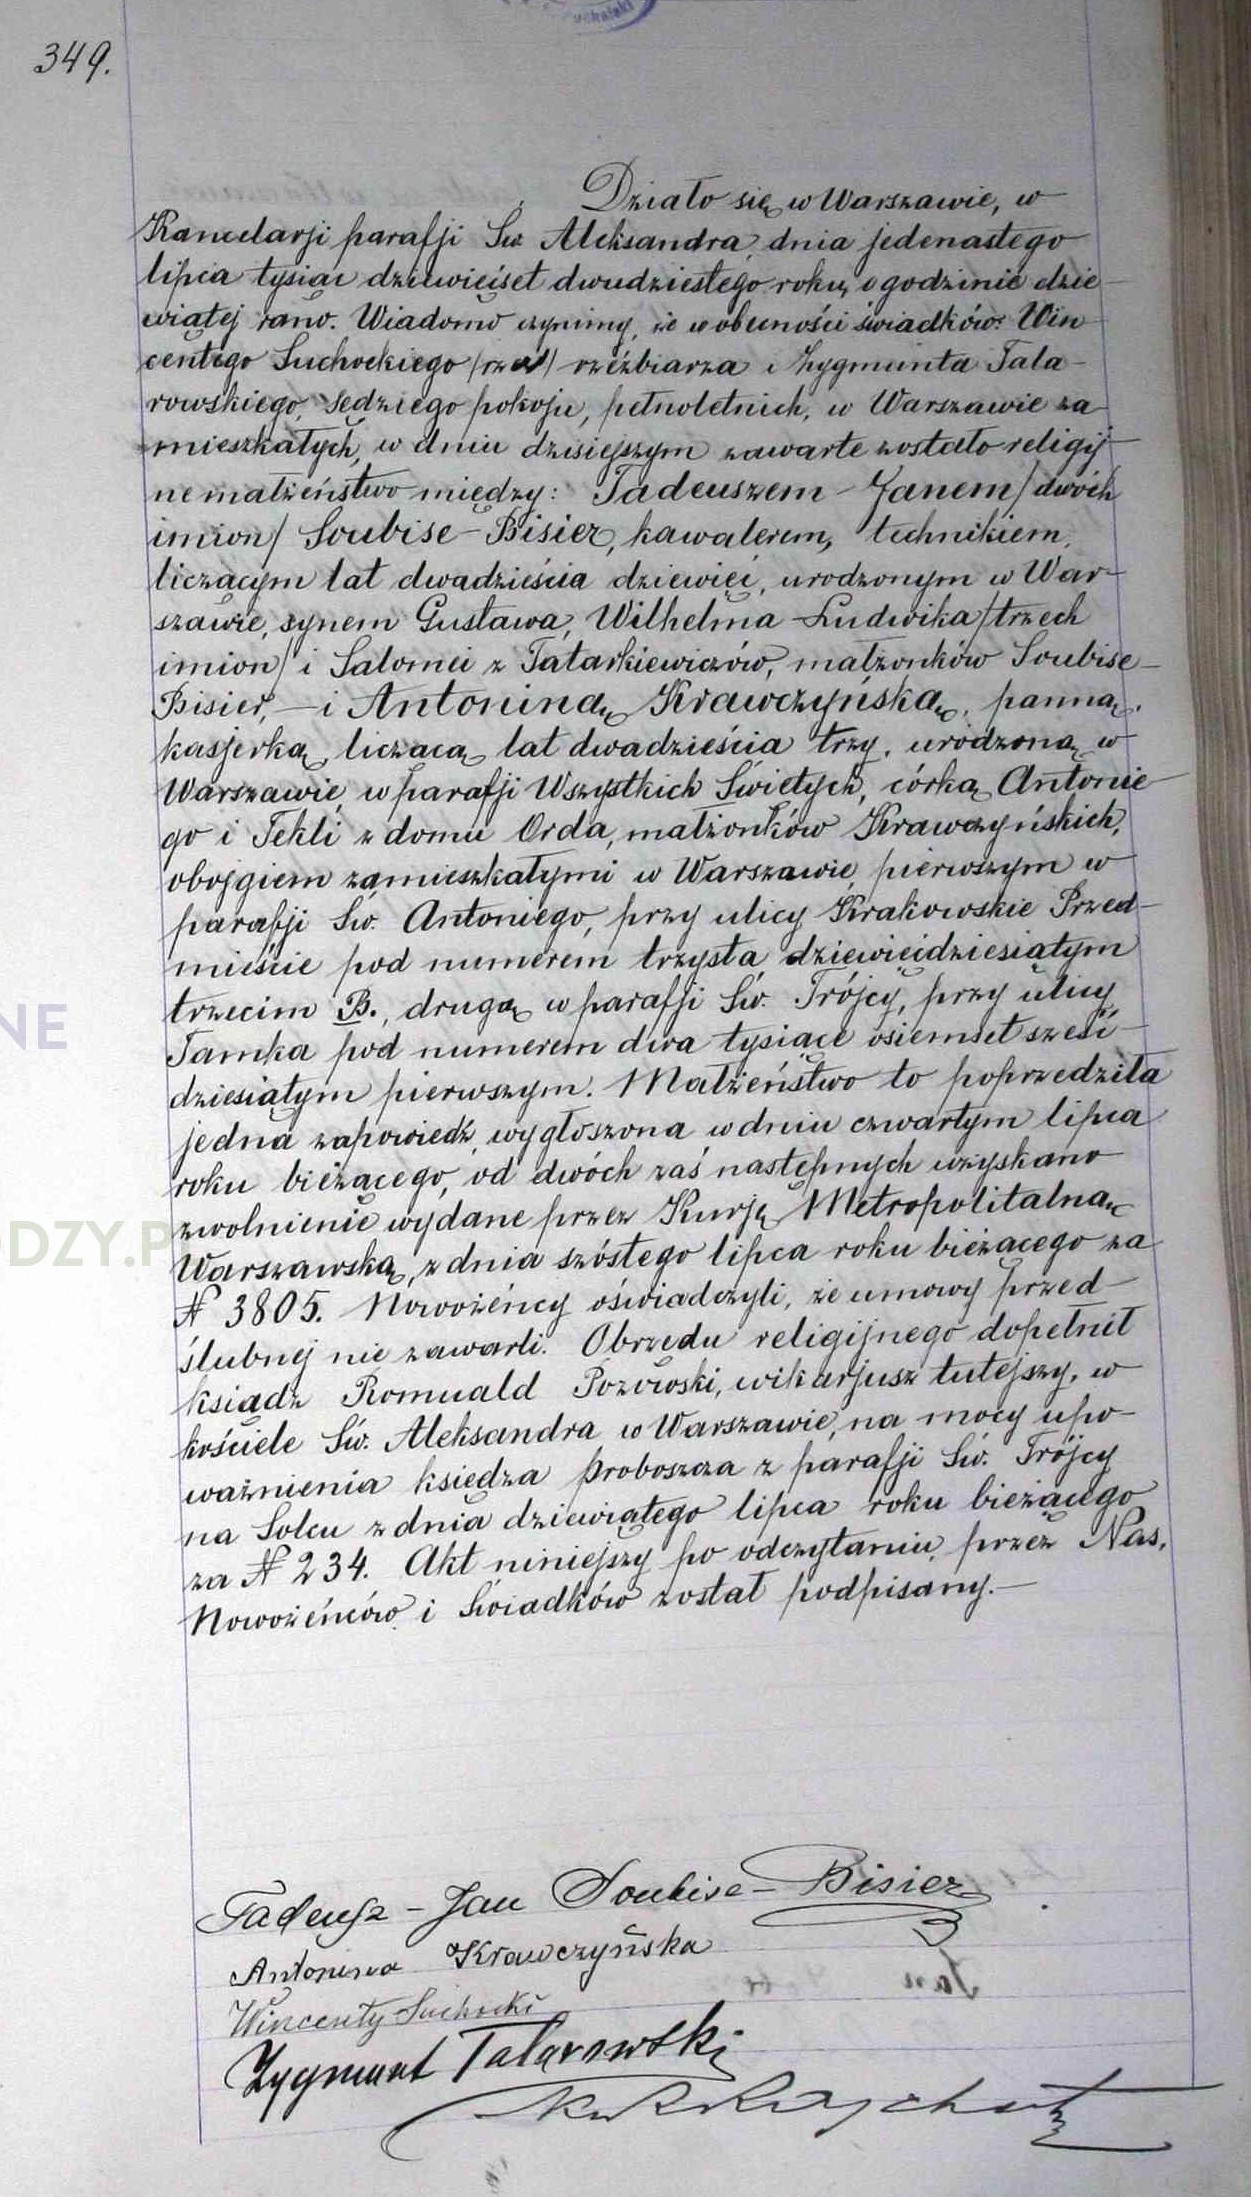 349.
Działo się w Warszawie, w
Kancelarji parafji Św. Aleksandra, dnia jedenastego
lipca tysiąc dziewięćset dwudziestego roku, o godzinie dzie-
wiątej rano. Wiadomo czynimy, że w obecności świadków: Win-
centego Suchockiego / / rzeźbiarza i Zygmunta Tala-
rowskiego, sędziego pokoju, pełnoletnich, w Warszawie za-
mieszkałych, w dniu dzisiejszym zawarte zostało religij-
ne małżeństwo między: Tadeuszem-Janem /dwóch
imion/ Soubise-Bisier, kawalerem, technikiem,
liczącym lat dwadzieścia dziewięć, urodzonym w War-
szawie, synem Gustawa, Wilhelma-Ludwika /trzech
imion/ i Salomei z Tatarkiewiczów, małżonków Soubise-
Bisier, — i Antoniną Krawczyńską, panną,
kasjerką, liczącą lat dwadzieścia trzy, urodzoną w
Warszawie, w parafji Wszystkich Świętych, córką Antonie-
go i Tekli z domu Orda, małżonków Krawczyńskich,
obojgiem zamieszkałymi w Warszawie, pierwszym w
parafji Św. Antoniego, przy ulicy Krakowskie Przed-
mieście pod numerem trzysta dziewięćdziesiątym
trzecim B., drugą w parafji Św. Trójcy, przy ulicy
Tamka pod numerem dwa tysiące osiemset sześć-
dziesiątym pierwszym. Małżeństwo to poprzedziła
jedna zapowiedź, wygłoszona w dniu czwartym lipca
roku bieżącego, od dwóch zaś następnych uzyskano
zwolnienie wydane przez Kurję Metropolitalną
Warszawską, z dnia szóstego lipca roku bieżącego za
№ 3805. Nowożeńcy oświadczyli, że umowy przed-
ślubnej nie zawarli. Obrzędu religijnego dopełnił
ksiądz Romuald Pozowski, wikarjusz tutejszy, w
kościele Św. Aleksandra w Warszawie, na mocy upo-
ważnienia księdza Proboszcza z parafji Św. Trójcy
na Solcu z dnia dziewiątego lipca roku bieżącego
za № 234. Akt niniejszy po odczytaniu, przez Nas,
Nowożeńców i Świadków został podpisany.—
Tadeusz-Jan Soubise-Bisier
Antonina Krawczyńska
Wincenty Suchocki
Zygmunt Talarowski
NE
ODZY.P